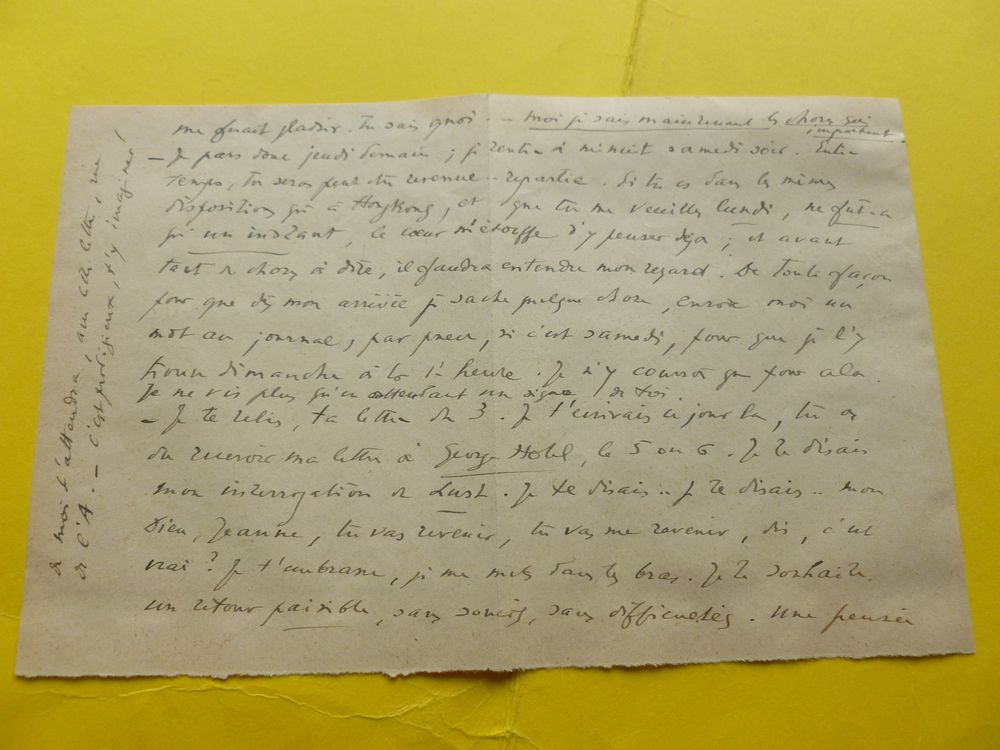 me ferait plaisir. Tu sais quoi. - Moi je sais maintenant les choses qui
importent.
- Je pars donc jeudi demain ; je rentre à minuit samedi soir. Entre
temps, tu seras peut être revenue - repartie. Si tu es dans les mêmes
dispositions qu'à HongKong, et que tu me veuilles lundi, ne fût-ce
qu'un instant, le cœur m'étouffe d'y penser déjà ; et avant
tant de choses à dire, il faudra entendre mon regard. De toute façon
pour que dès mon arrivée je sache quelque chose, envoie moi un
mot au journal, par pneu, si c'est samedi, pour que je l'y
trouve dimanche à la 1e heure. Je n'y courrai que pour cela.
Je ne vis plus qu'en attendant un signe de toi.
- Je te relis, ta lettre du 3. Je t'écrivais ce jour là, tu as
du recevoir ma lettre à George Hotel, le 5 ou 6. Je te disais
mon interrogation de Lust. Je te disais.. Je te disais.. mon
Dieu, Jeanne, tu vas revenir, tu vas me revenir, dis, c'est
vrai ? Je t'embrasse, je me mets dans tes bras. Je te souhaite
un retour paisible, sans soucis, sans difficultés. Une pensée
de moi t'attendra, avec cette lettre, rue
de l'A. - C'est prodigieux, d'y imaginer !